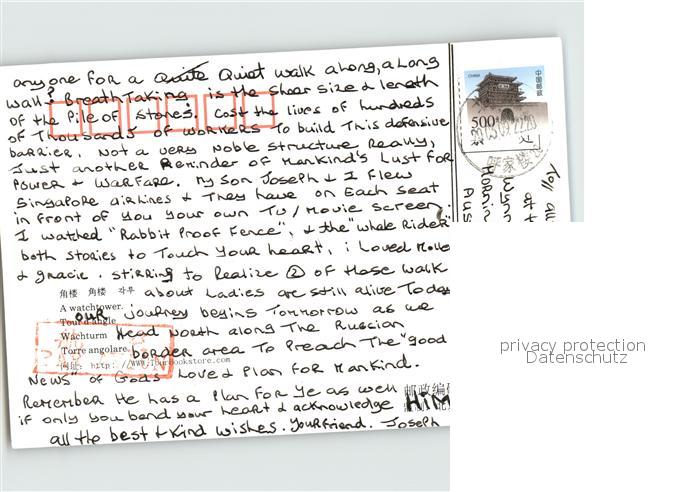 anyone for a Quiet walk along, a Long
wall? BreathTaking is the shear size & length
of the Pile of stones. Cost the lives of hundreds
of Thousands of workers To build This defensive
barrier. Not a very Noble structure Really,
Just another Reminder of Mankind's Lust For
Power & Warfare. My Son Joseph & I Flew
Singapore airlines & They have on Each seat
in front of You Your own TV/Movie Screen.
I watched "Rabbit Proof Fence", & the "Whale Rider
both stories to Touch Your heart, i Loved Molle
& gracie. stirring to Realize ② of those walk
角楼 角楼 각루 about Ladies are still alive Today
A watchtower. our journey begins Tomorrow as we
Tour d'angle
Wachturm Head North along The Russian
Torre angolare. border area To Preach The "good
网址: http://www.Tourbookstore.com
News" of Gods Love & Plan For Mankind.
Remember He has a Plan For Ye as well 邮政编码
if only You bend your heart & acknowledge HIM
all the best & Kind wishes. Your friend. Joseph
CHINA
中国邮政
500
呼家楼
To//
at
Wyn
Hornin
Aus
privacy protection
Datenschutz